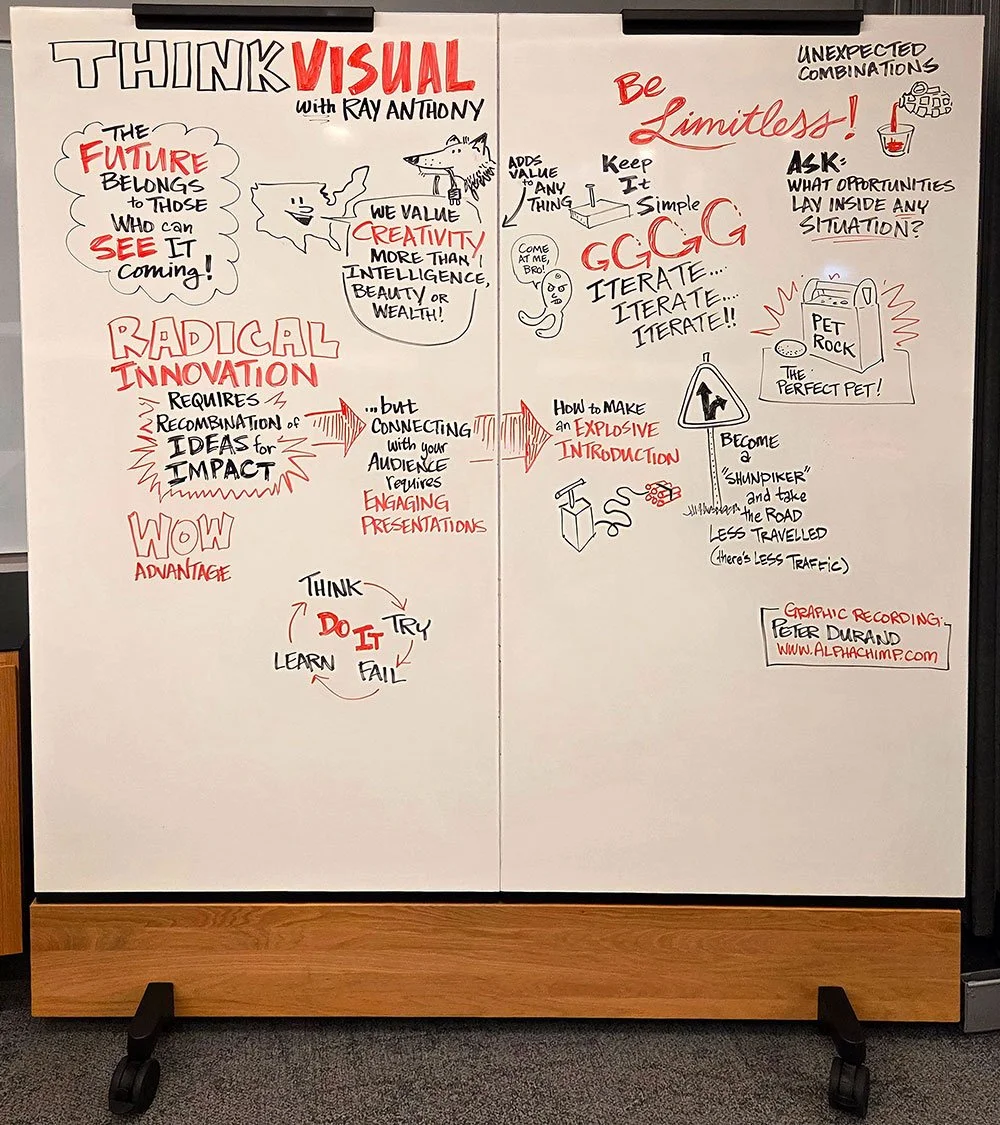 THINK VISUAL
with RAY ANTHONY
THE
FUTURE
BELONGS
to THOSE
WHO can
SEE IT
coming!
WE VALUE
CREATIVITY
MORE THAN
INTELLIGENCE,
BEAUTY or
WEALTH!
RADICAL
INNOVATION
REQUIRES
RECOMBINATION of
IDEAS for
IMPACT
...but
CONNECTING
with your
AUDIENCE
requires
ENGAGING
PRESENTATIONS
WOW
ADVANTAGE
THINK
TRY
FAIL
LEARN
DO IT
Be
Limitless!
UNEXPECTED
COMBINATIONS
ADDS
VALUE
to ANY
THING
Keep
It
Simple
ASK:
WHAT OPPORTUNITIES
LAY INSIDE ANY
SITUATION?
COME
AT ME,
BRO!
GGGG
ITERATE...
ITERATE...
ITERATE!!
PET
ROCK
THE
PERFECT PET!
HOW to MAKE
an EXPLOSIVE
INTRODUCTION
BECOME
a
"SHUNPIKER"
and take
the ROAD
LESS TRAVELLED
(there's LESS TRAFFIC)
GRAPHIC RECORDING:
PETER DURAND
WWW.ALPHACHIMP.COM